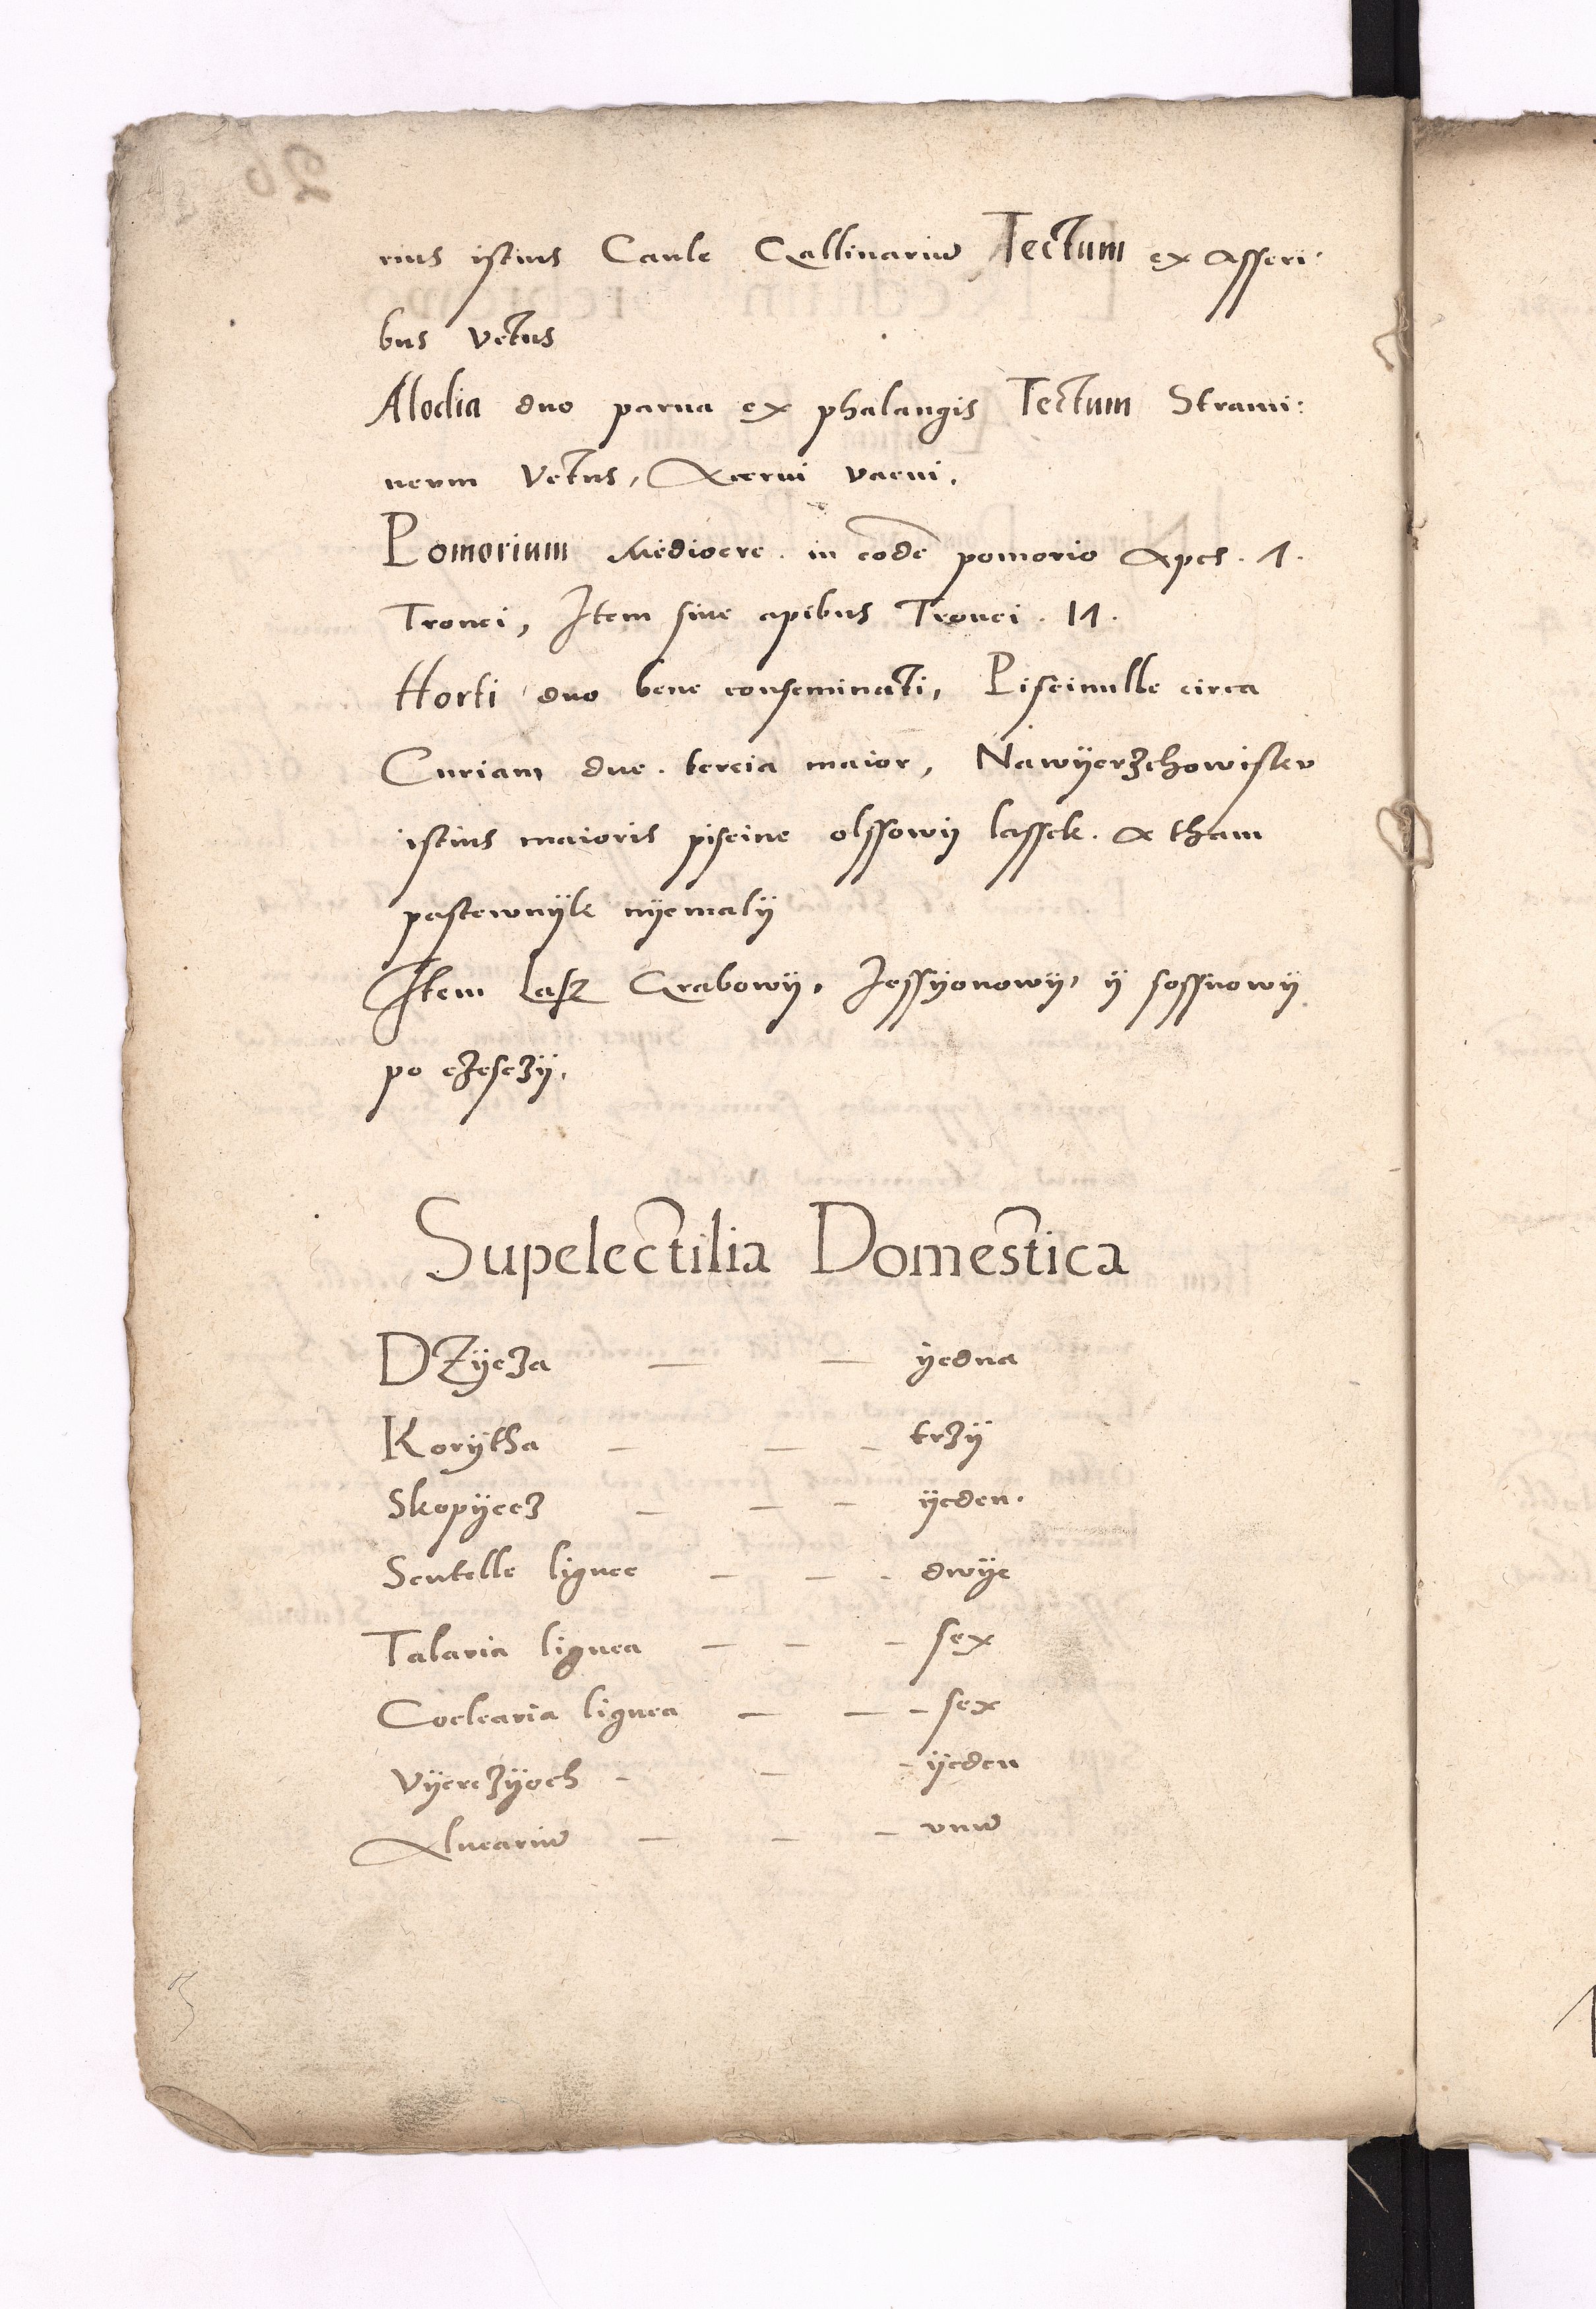 rius istius Caule Gallinariũ Tectum ex Asseri:
bus vetus
Alodia duo parua ex phalangis Tectum Strami:
neum Vetus, Acerui vacui.
Pomorium Mediocre. in eodẽ pomorio Apes. 1.
Tronci, Item sine apibus Tronci. 11.
Horti duo bene conseminati, Piscinulle circa
Curiam due. tercia maior, Nawÿerzchowisko
istius maioris piscine olssowÿ lassek. a tham
pastewnÿk nÿemalÿ
Item Lask Grabowÿ, Jessÿonowÿ, ÿ sossnowÿ
po czesczÿ.
Supelectilia Domestica
DZÿeza — — ÿedna
Korÿtha — — — trzÿ
Skopÿecz — — — ÿeden.
Scutelle lignee — — - dwÿe
Talaria lignea — — — sex
Coclearia lignea — — — sex
Vÿerczÿoch - — - ÿeden
Alueariũ — — — vnũ